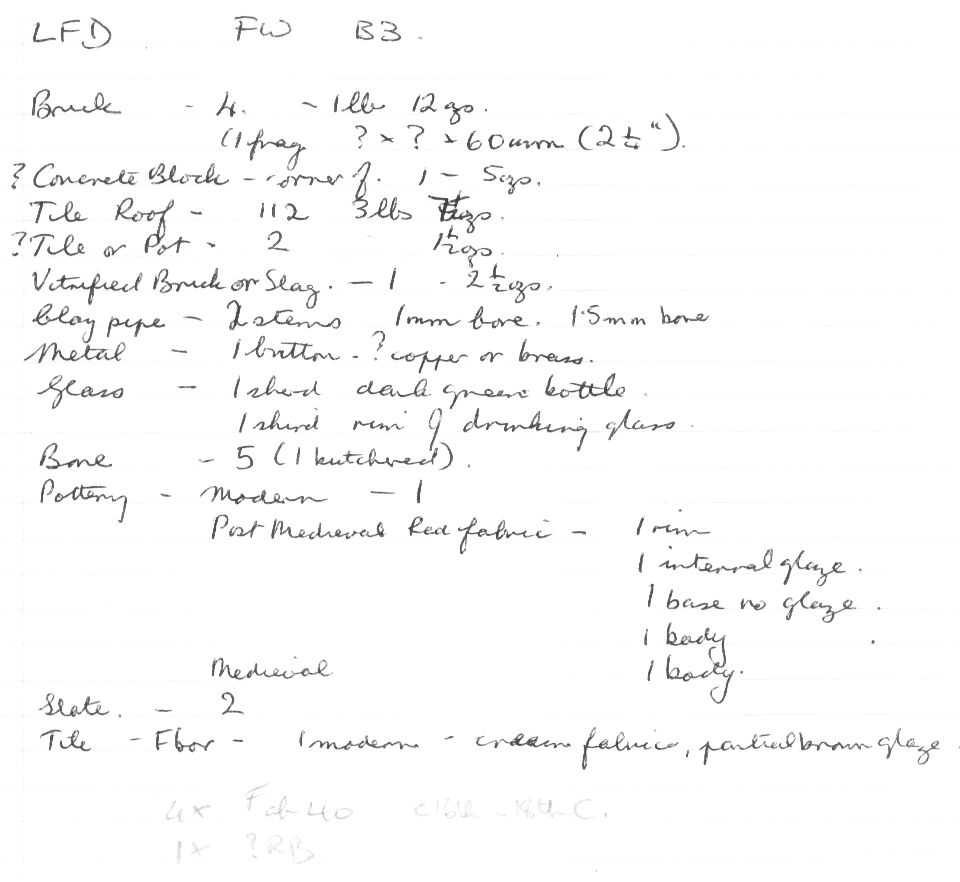 LFD FW B3.
Brick - 4. ~ 1lb 12ozs.
(1 frag ? x ? x 60mm (2 1/4").
? Concrete Block - corner of. 1 - 5ozs.
Tile Roof - 112 3lbs ozs.
? Tile or Pot - 2 1 1/2ozs.
Vitrified Brick or Slag. - 1 - 2 1/2ozs.
Clay pipe - 2 stems 1mm bore. 1.5mm bore
Metal - 1 button - ? copper or brass.
Glass - 1 sherd dark green bottle.
1 sherd rim of drinking glass.
Bone - 5 (1 butchered).
Pottery - Modern - 1
Post Medieval Red fabric - 1 rim
1 internal glaze.
1 base no glaze.
1 body.
Medieval 1 body.
Slate. - 2
Tile - Floor - 1 modern - cream fabric, partial brown glaze.
4x Fab 40 c16th - 18th C.
1x ?RB